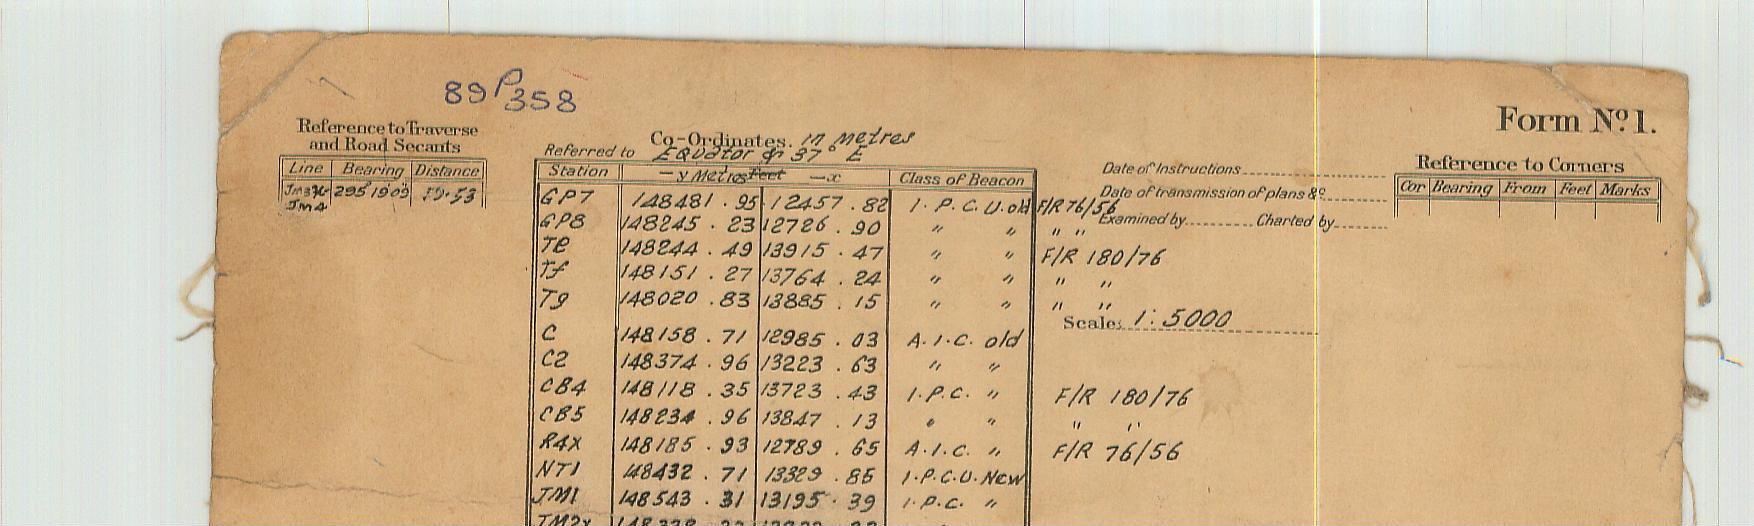 89P358
Form Nº1.
Reference to Traverse
and Road Secants
Line Bearing Distance
295 19 09
JM4
Co-Ordinates. in Metres
Referred to Equator & 37° E
Station —y Metres Feet —x Class of Beacon
GP7 148481.95 12457.82 I.P.C.U. old F/R 76/56
GP8 148245.23 12726.90 " " " "
TE 148244.49 13915.47 " " F/R 180/76
Tf 148151.27 13764.24 " " " "
Tg 148020.83 13885.15 " " " "
C 148158.71 12985.03 A.I.C. old
C2 148374.96 13223.63 " "
CB4 148118.35 13723.43 I.P.C. " F/R 180/76
CB5 148234.96 13847.13 " " " "
R4X 148185.93 12789.65 A.I.C. " F/R 76/56
NT1 148432.71 13329.86 I.P.C.U. New
JM1 148543.31 13195.39 I.P.C. "
Date of Instructions
Date of transmission of plans &c
Examined by Charted by
Scale: 1:5000
Reference to Corners
Cor Bearing From Feet Marks